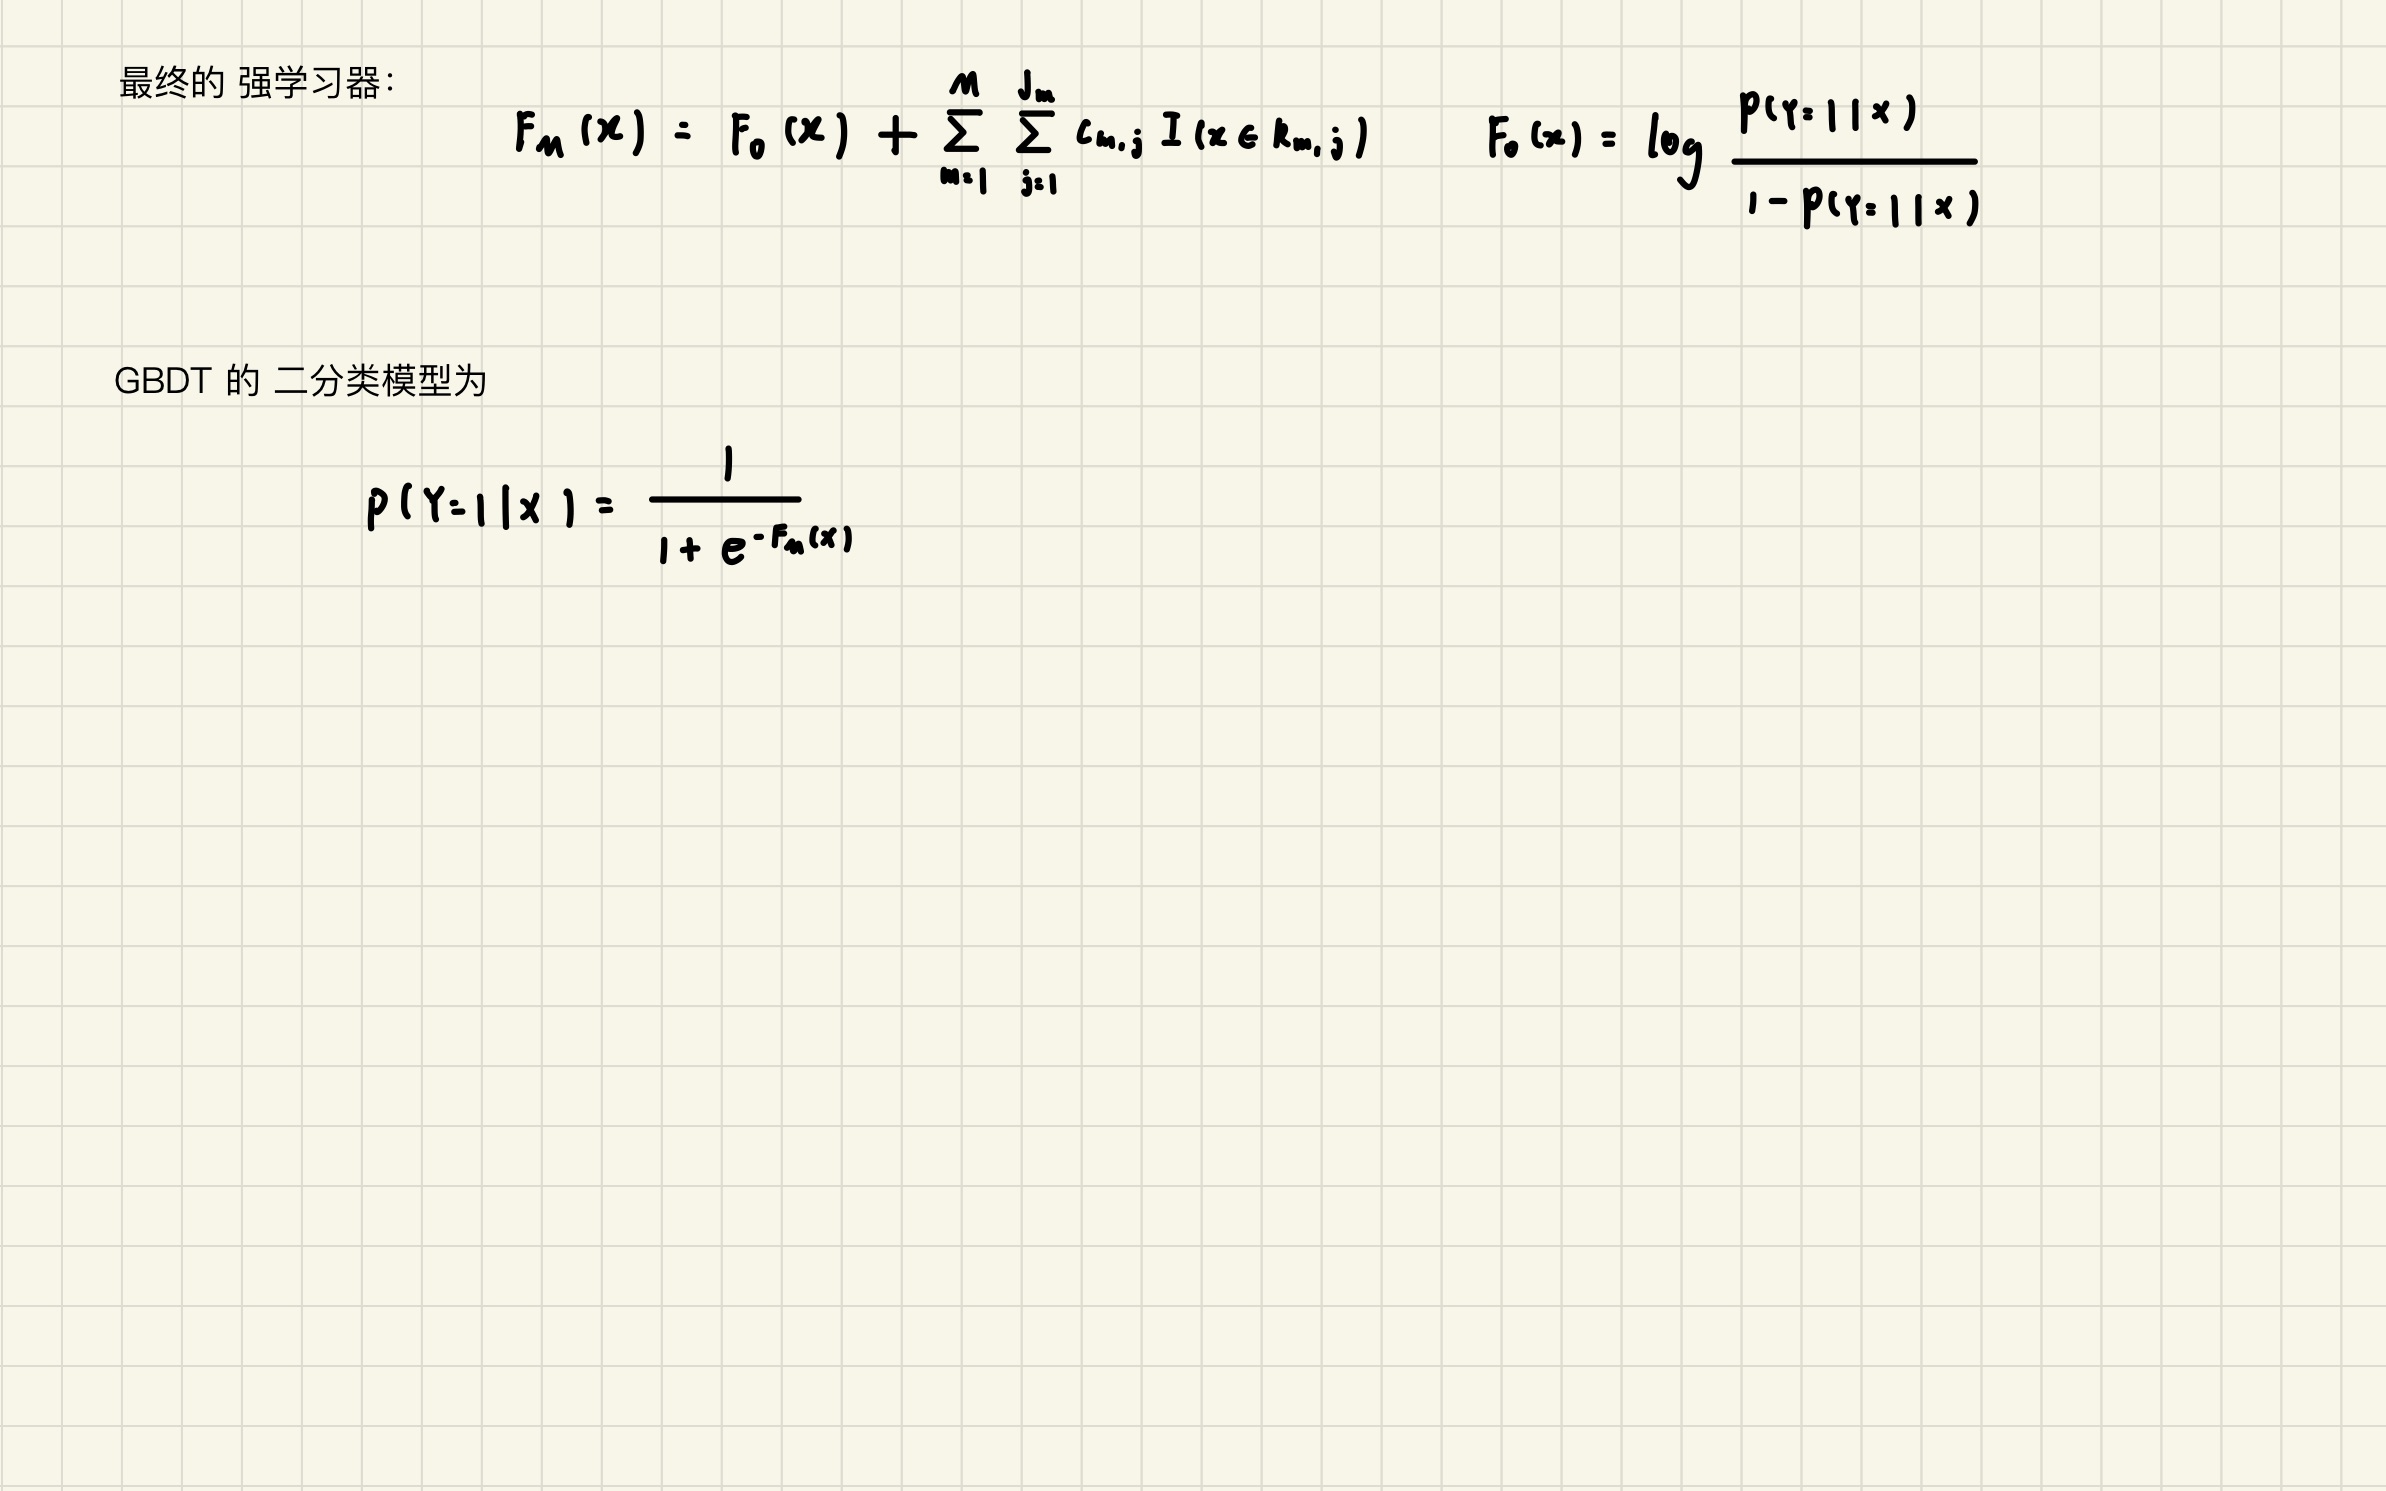 最终的 强学习器：
F_M(x) = F_0(x) + \sum_{m=1}^{M} \sum_{j=1}^{J_m} c_{m,j} I(x ∈ R_{m,j})    F_0(x) = log \frac{P(Y=1|x)}{1-P(Y=1|x)}
GBDT 的 二分类模型为
P(Y=1|x) = \frac{1}{1+e^{-F_M(x)}}